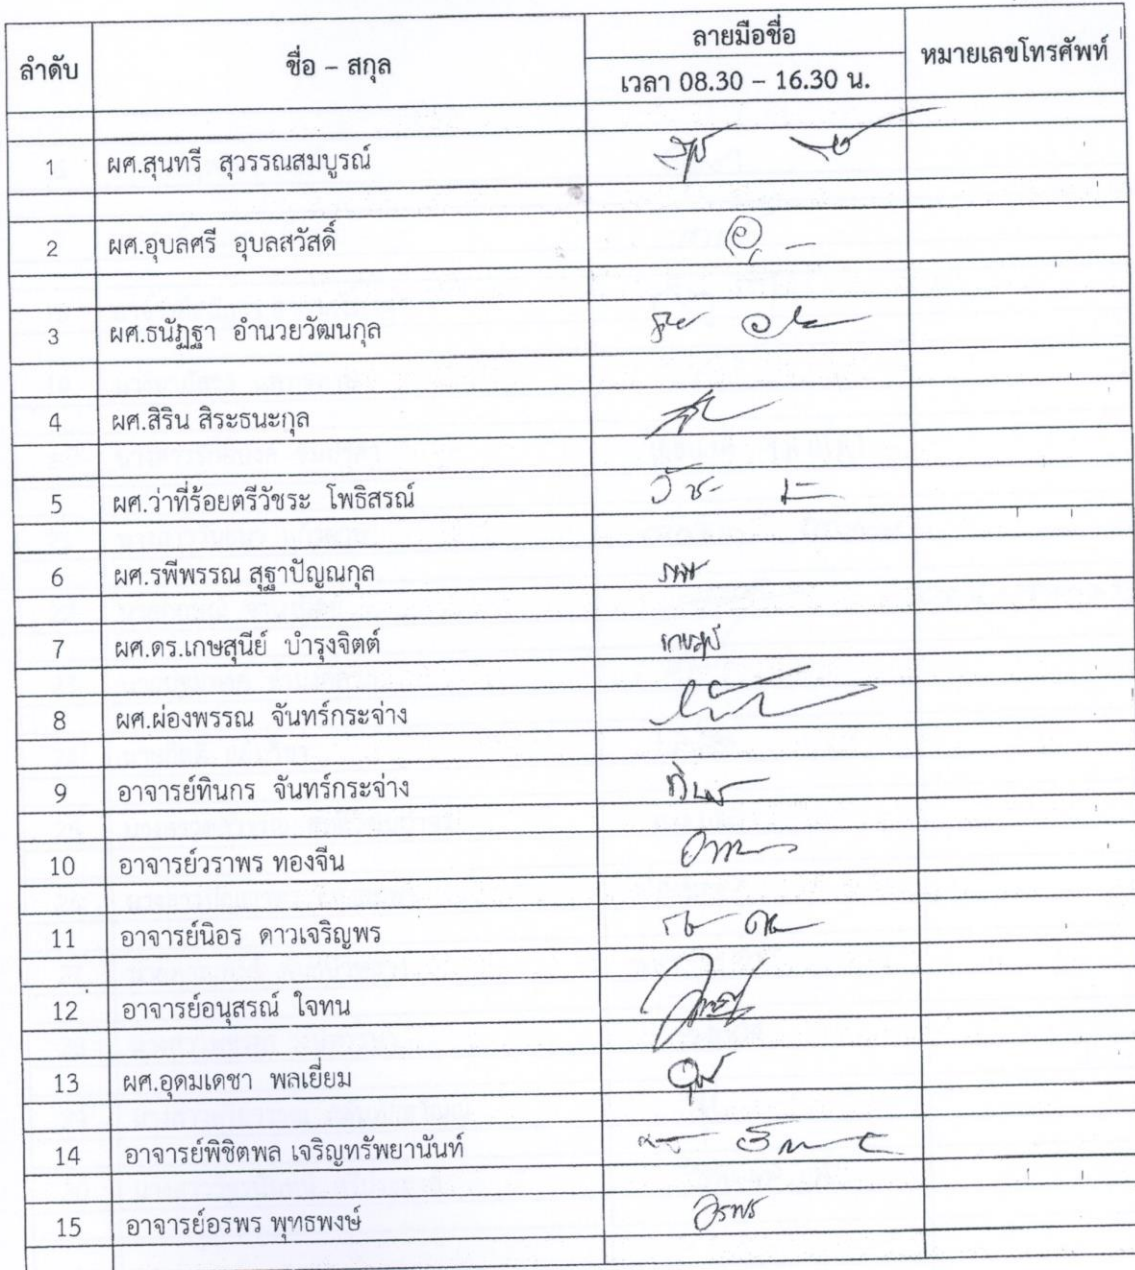 ลำดับ ชื่อ – สกุล ลายมือชื่อ หมายเลขโทรศัพท์
เวลา 08.30 – 16.30 น.
1 ผศ.สุนทรี สุวรรณสมบูรณ์
2 ผศ.อุบลศรี อุบลสวัสดิ์
3 ผศ.ธนัฏฐา อำนวยวัฒนกุล
4 ผศ.สิริน สิระธนะกุล
5 ผศ.ว่าที่ร้อยตรีวัชระ โพธิสรณ์
6 ผศ.รพีพรรณ สุฐาปัญณกุล
7 ผศ.ดร.เกษสุนีย์ บำรุงจิตต์ เกษสุนีย์
8 ผศ.ผ่องพรรณ จันทร์กระจ่าง
9 อาจารย์ทินกร จันทร์กระจ่าง
10 อาจารย์วราพร ทองจีน
11 อาจารย์นิอร ดาวเจริญพร
12 อาจารย์อนุสรณ์ ใจทน
13 ผศ.อุดมเดชา พลเยี่ยม
14 อาจารย์พิชิตพล เจริญทรัพยานันท์
15 อาจารย์อรพร พุทธพงษ์ อรพร